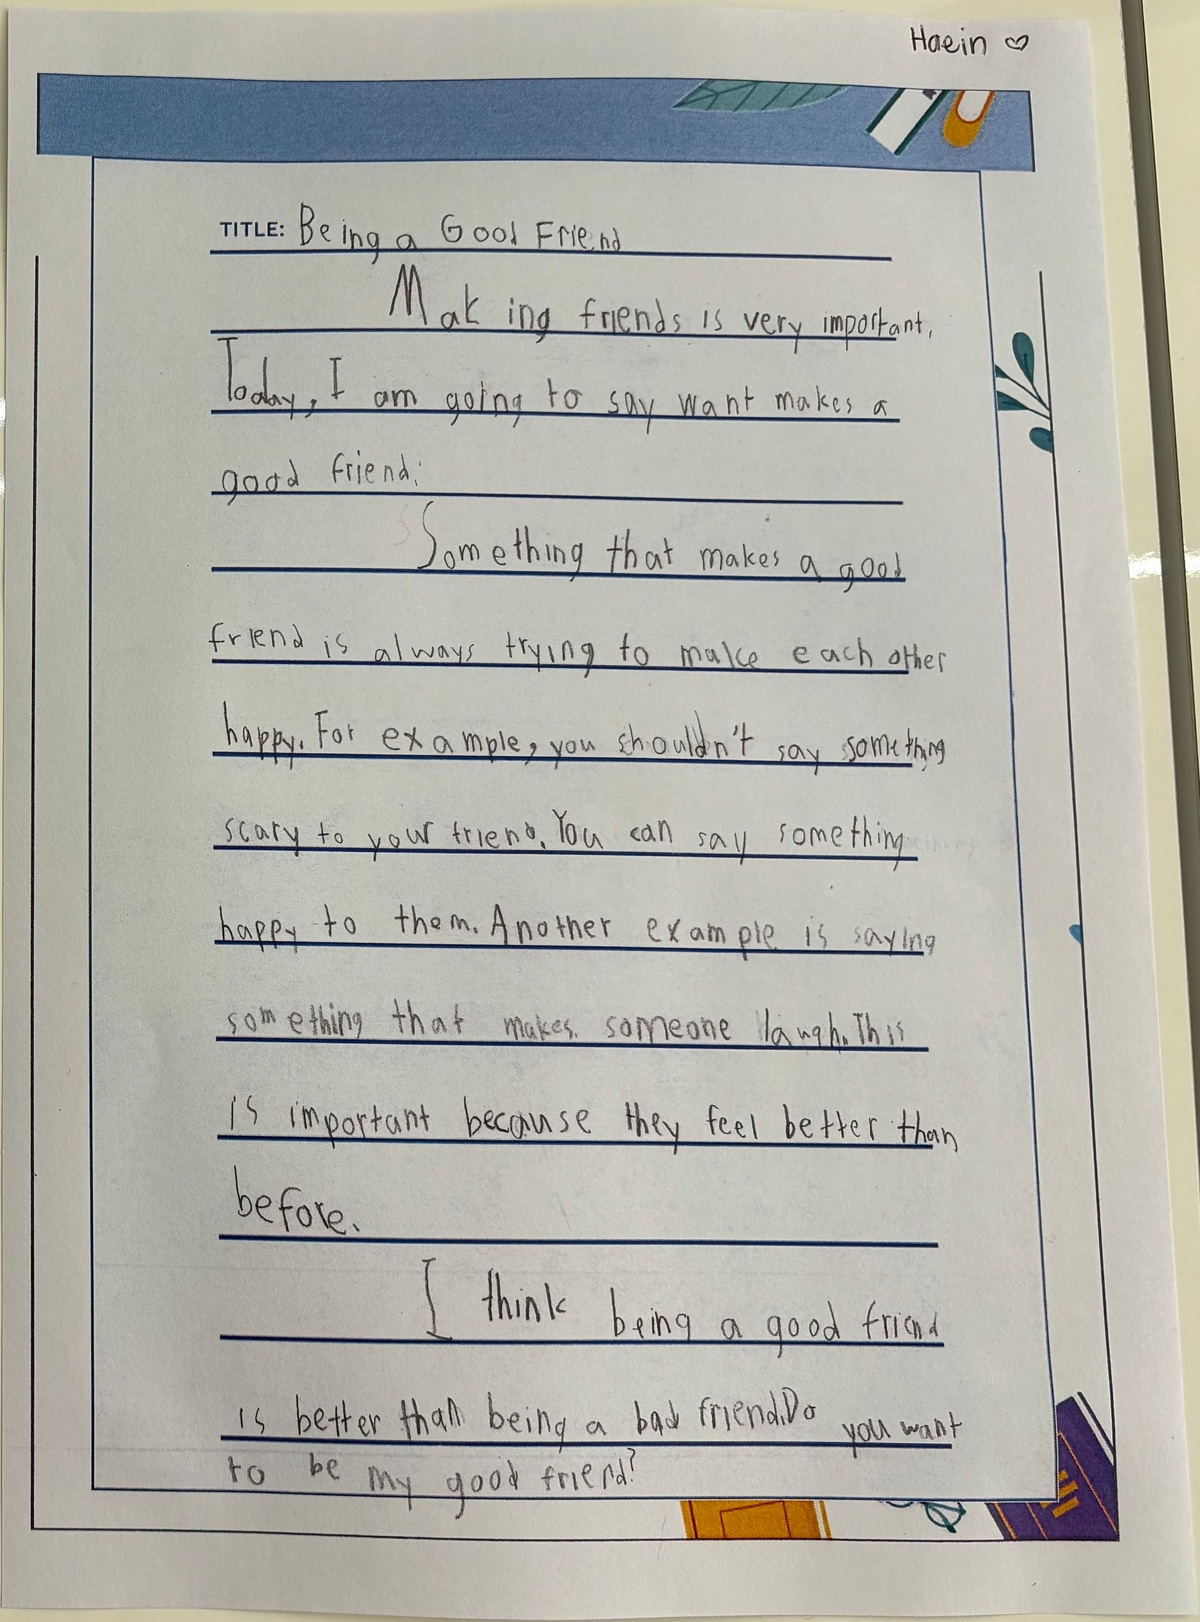 Haein ♡
TITLE: Being a Good Friend
Making friends is very important.
Today, I am going to say want makes a
good friend.
Something that makes a good
friend is always trying to make each other
happy. For example, you shouldn't say something
scary to your friend. You can say something
happy to them. Another example is saying
something that makes someone laugh. This
is important because they feel better than
before.
I think being a good friend
is better than being a bad friend. Do you want
to be my good friend?